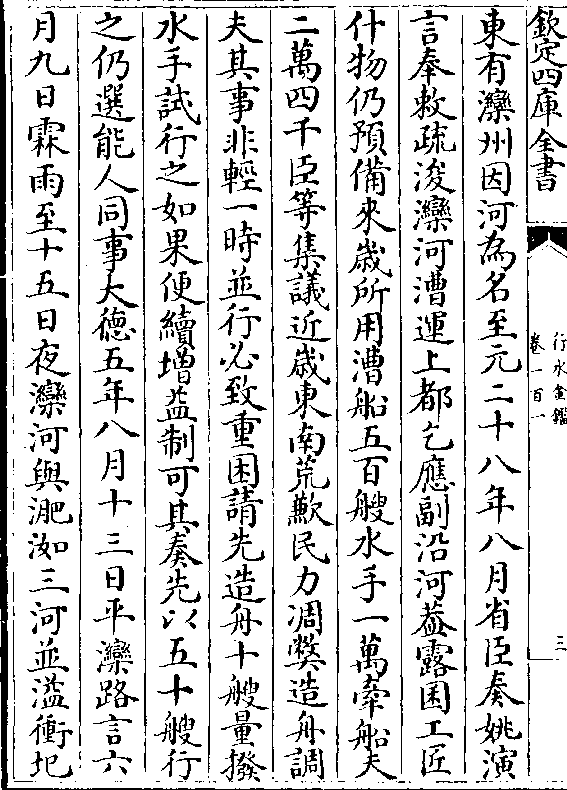 欽定四庫全書
行水金鑑
卷一百一
三
東有灤州因河為名至元二十八年八月省臣奏姚演
言奉敕疏浚灤河漕運上都乞應副沿河葢露囷工匠
什物仍預備來歲所用漕船五百艘水手一萬牽船夫
二萬四千臣等集議近歲東南荒歉民力凋弊造舟調
夫其事非輕一時並行必致重困請先造舟十艘量撥
水手試行之如果便續增益制可其奏先以五十艘行
之仍選能人同事大德五年八月十三日平灤路言六
月九日霖雨至十五日夜灤河與淝洳三河並溢衝圯